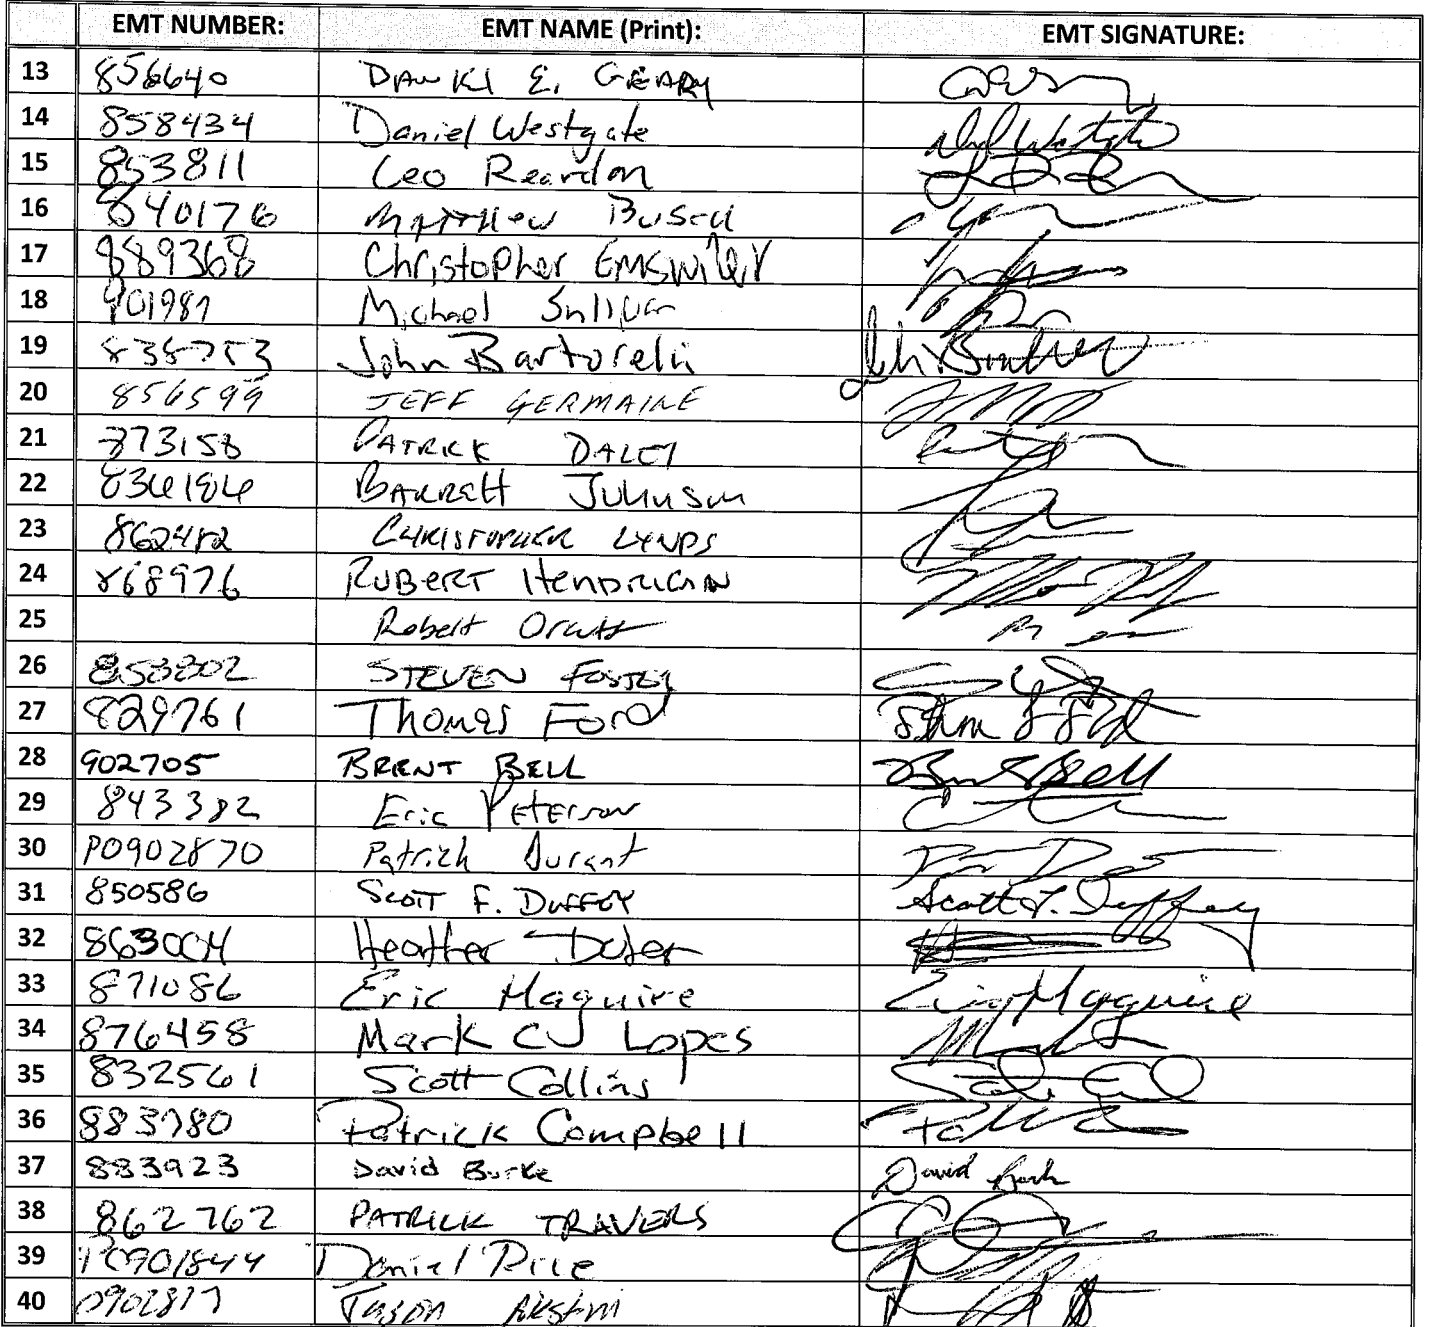 EMT NUMBER: EMT NAME (Print): EMT SIGNATURE:
13 856640 E. GEARY
14 858434 Daniel Westgate
15 853811 Leo Reardon
16 840176 MATTHEW BUSCH
17 889368 Christopher EMSWILER
18 901987 Michael Sullivan
19 838753 John Bartorelli
20 856599 JEFF GERMAINE
21 873158 PATRICK DALEY
22 836186 BARRETT JOHNSON
23 862482 CHRISTOPHER LYNDS
24 868976 ROBERT HENDRIGAN
25 Robert Orcutt
26 853802 STEVEN FOSTER
27 829761 Thomas Ford
28 902705 BRENT BELL Brent Bell
29 843382 Eric PETERSON
30 P0902870 Patrick Durant
31 850586 SCOTT F. DUFFEY Scott F. Duffey
32 863004 Heather
33 871086 Eric Maguire Eric Maguire
34 876458 Mark CJ Lopes
35 832561 Scott Collins
36 883780 Patrick Campbell
37 883923 David Burke David Burke
38 862762 PATRICK TRAVERS
39 P0901844 Daniel Price
40 0902817 Jason